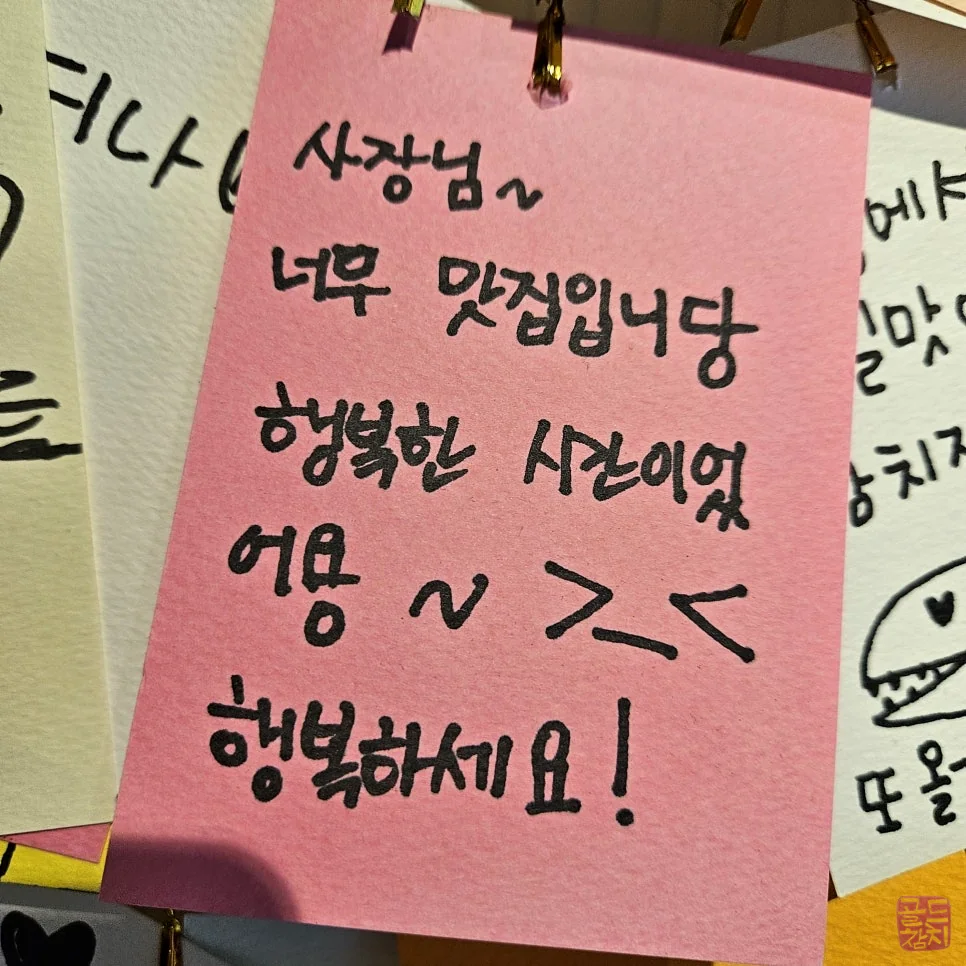 사장님~
너무 맛집입니당
행복한 시간이었
어용 ~ >_<
행복하세요!
에서
맛
치즈
또 올